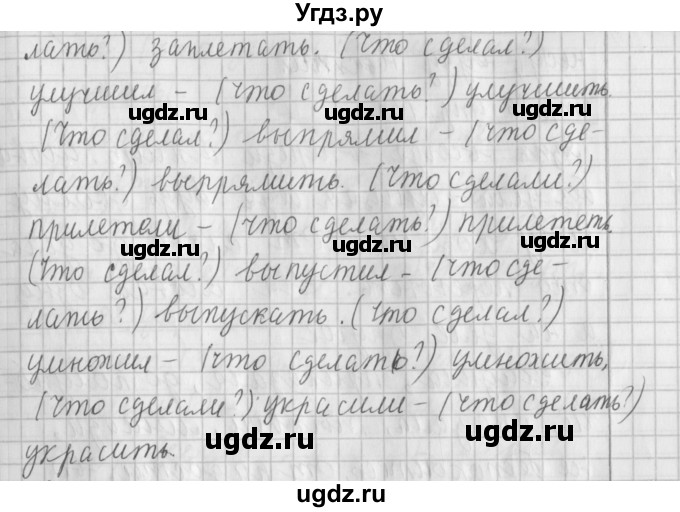 Угдз.ру
лать?) заплетать. (Что сделал?)
улучшил – (что сделать?) улучшить.
ugdz.ru ugdz.ru
(Что сделал?) выпрямил – (что сде-
лать?) выпрямить. (Что сделали?)
прилетели – (что сделать?) прилететь.
ugdz.ru ugdz.ru
(Что сделал?) выпустил – (что сде-
лать?) выпускать. (Что сделал?)
умножил – (что сделать?) умножить,
(Что сделали?) украсили – (что сделать?)
ugdz.ru ugdz.ru
украсить.
ugdz.ru